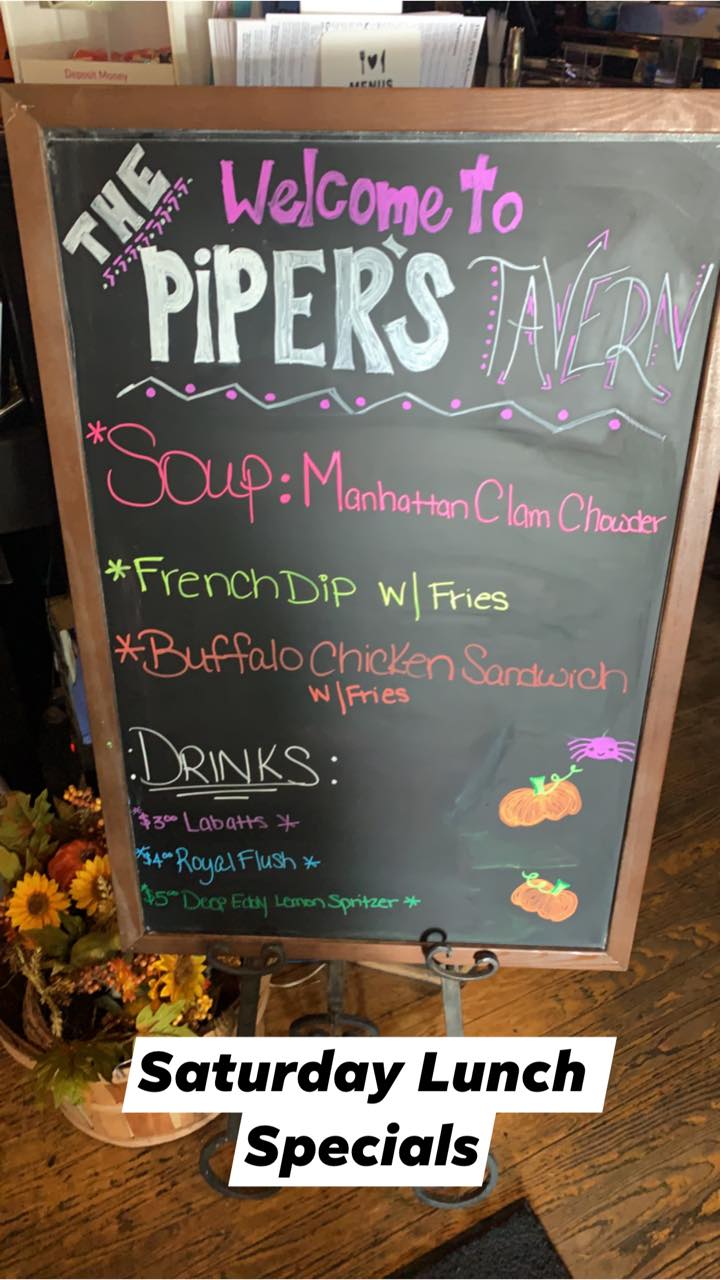 Deposit Money
MENUS
Welcome to
THE
PiPER'S TAVERN
*Soup: Manhattan Clam Chowder
*French Dip w/ Fries
*Buffalo Chicken Sandwich
w/Fries
:DRINKS:
*$3⁰⁰ Labatts *
*$4⁰⁰ Royal Flush *
*$5⁰⁰ Deep Eddy Lemon Spritzer *
Saturday Lunch
Specials